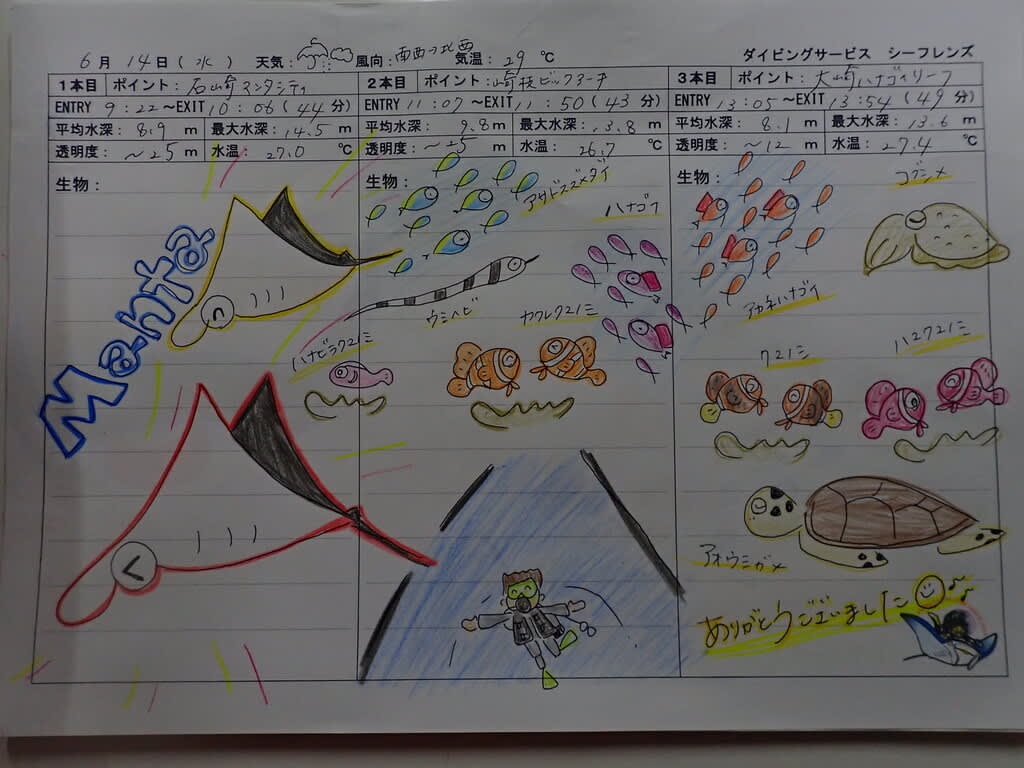 6月 14日 (水) 天気: 風向: 南西→北西 気温: 29 ℃ ダイビングサービス シーフレンズ
1本目 ポイント: 石崎マンタシティ
ENTRY 9:22 ～EXIT 10:06 (44分)
平均水深: 8.9 m 最大水深: 14.5 m
透明度: ～25 m 水温: 27.0 ℃
生物:
Manta
2本目 ポイント: 崎枝ビッグアーチ
ENTRY 11:07 ～EXIT 11:50 (43分)
平均水深: 9.8 m 最大水深: 13.8 m
透明度: ～25 m 水温: 26.7 ℃
生物:
アサドスズメダイ
ハナゴイ
ウミヘビ
カクレクマノミ
ハナビラクマノミ
3本目 ポイント: 大崎ハナゴイリーフ
ENTRY 13:05 ～EXIT 13:54 (49分)
平均水深: 8.1 m 最大水深: 13.6 m
透明度: ～12 m 水温: 27.4 ℃
生物:
コブシメ
アカネハナゴイ
クマノミ
ハマクマノミ
アオウミガメ
ありがとうございました